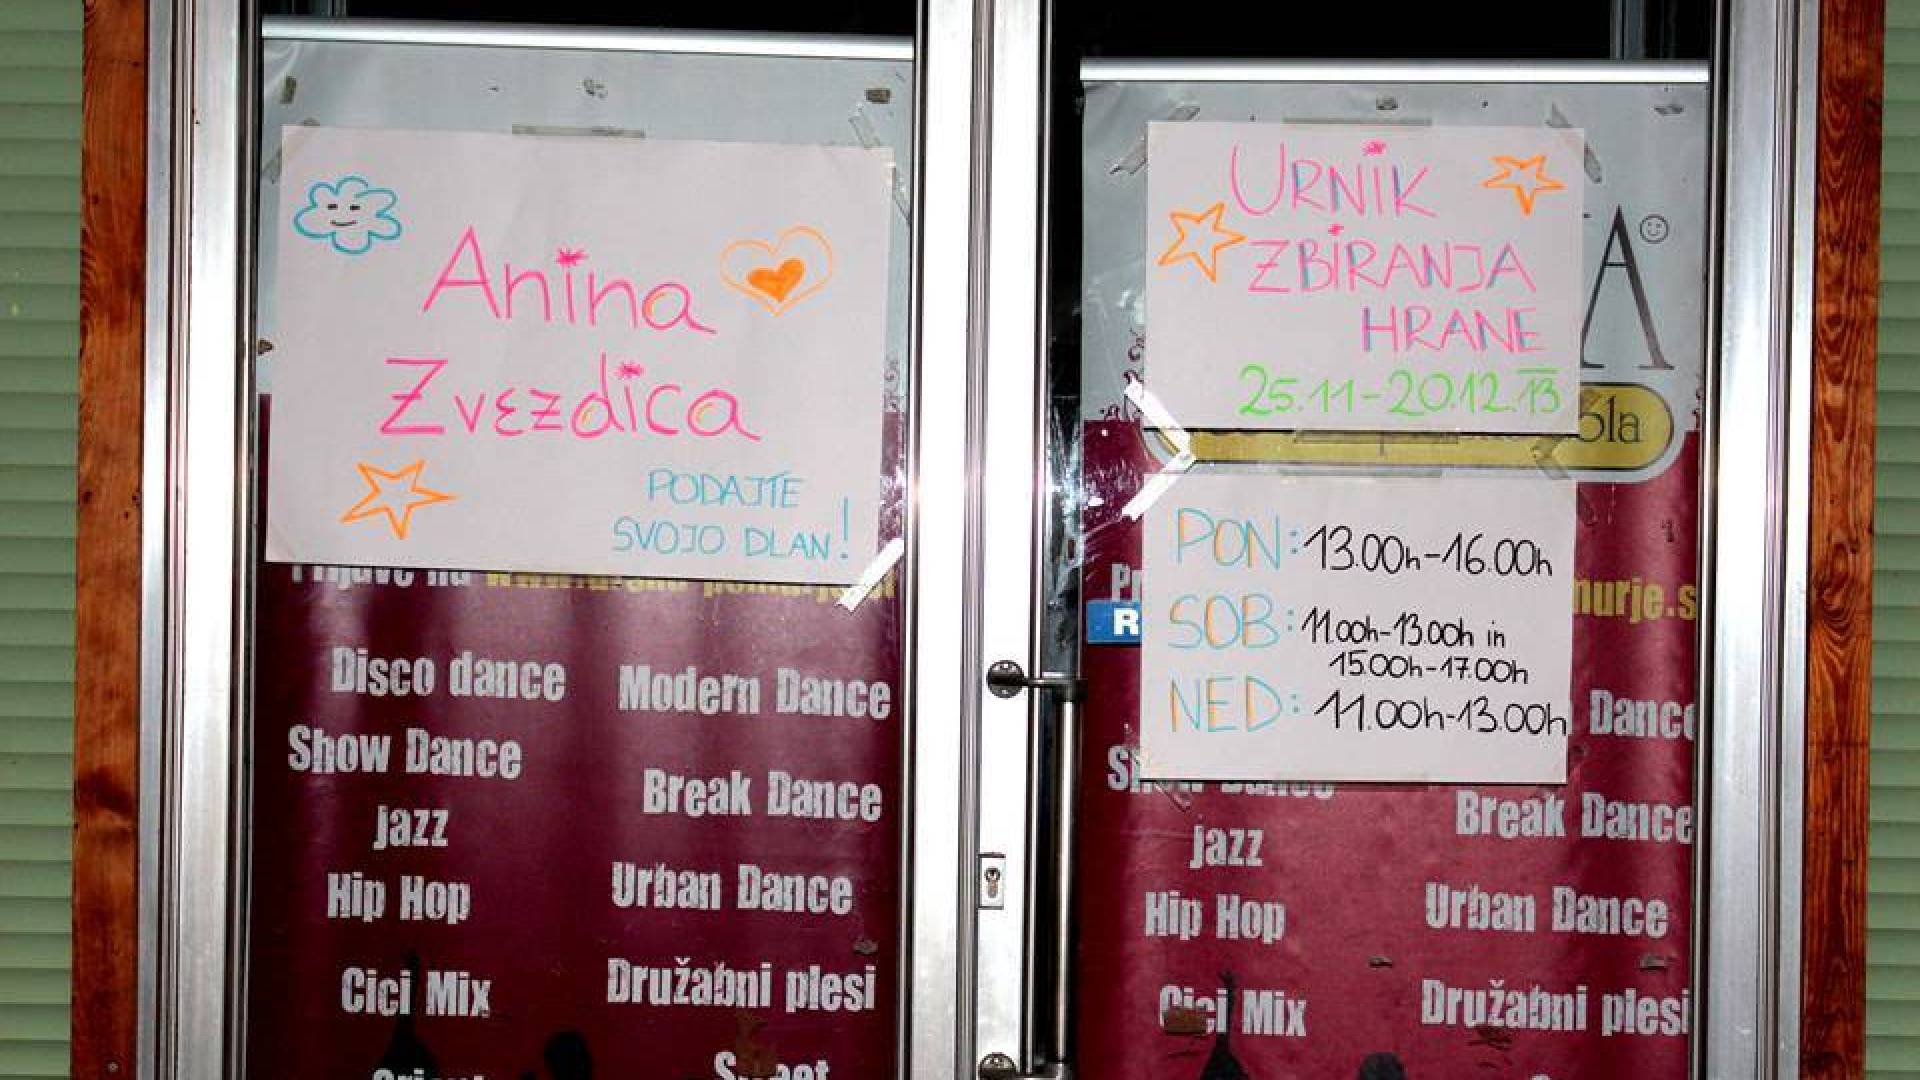 Anina
Zvezdica
PODAJTE
SVOJO DLAN!
Prijave na
Disco dance
Modern Dance
Show Dance
Break Dance
Jazz
Urban Dance
Hip Hop
Družabni plesi
Cici Mix
URNIK
ZBIRANJA
HRANE
25.11-20.12.13
A
ola
PON: 13.00h-16.00h
SOB: 11.00h-13.00h in
15.00h-17.00h
NED: 11.00h-13.00h
murje.s
R
Dance
Show Dance
Break Dance
Jazz
Urban Dance
Hip Hop
Družabni plesi
Cici Mix